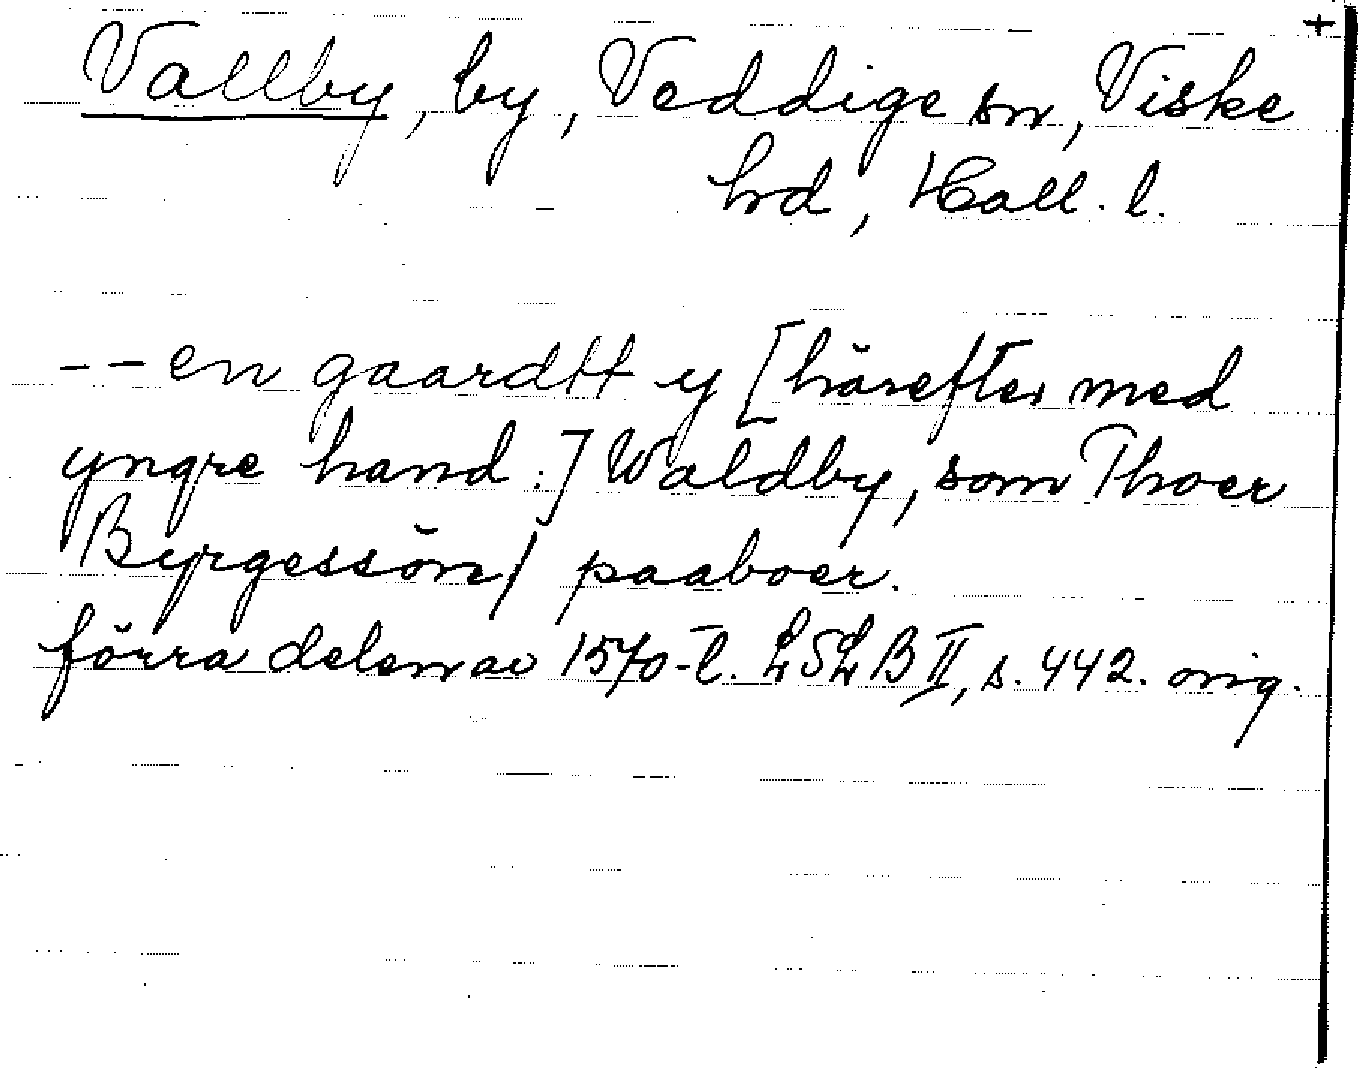 +
Vallby, by, Veddige sn, Viske
hd, Hall. l.
-- en gaardtt y [härefter med
yngre hand:] Waldby, som Thoer
Byrgessön/ paaboer.
förra delen av 1570-t. LSLB II, s. 442. orig.